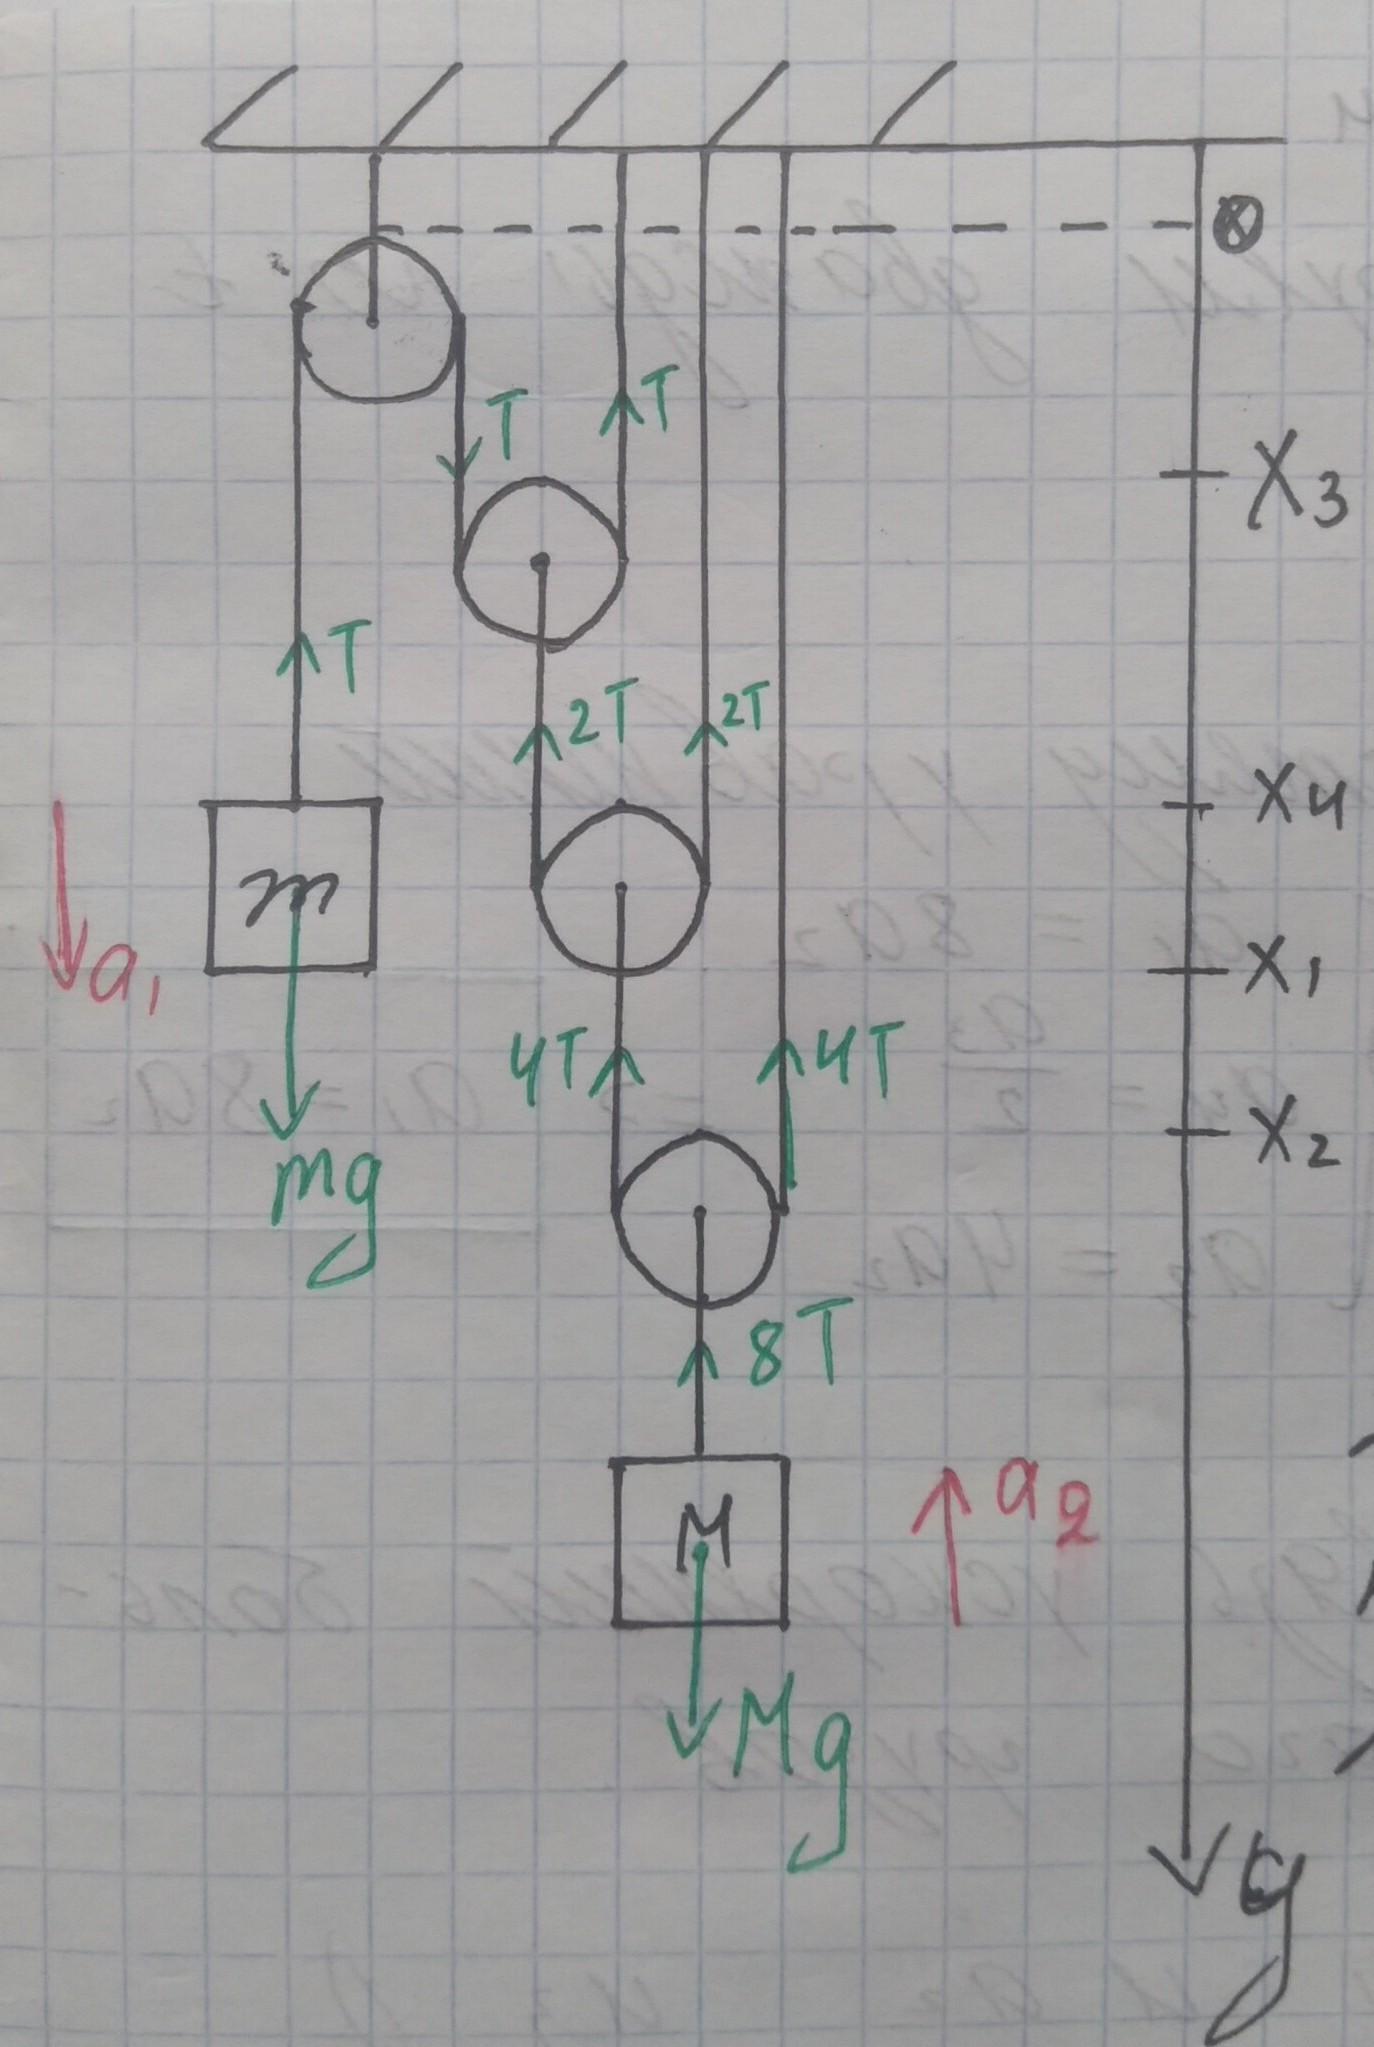 X₃
T
T
T
2T
2T
X₄
m
a₁
X₁
4T
4T
X₂
mg
8T
M
a₂
Mg
y